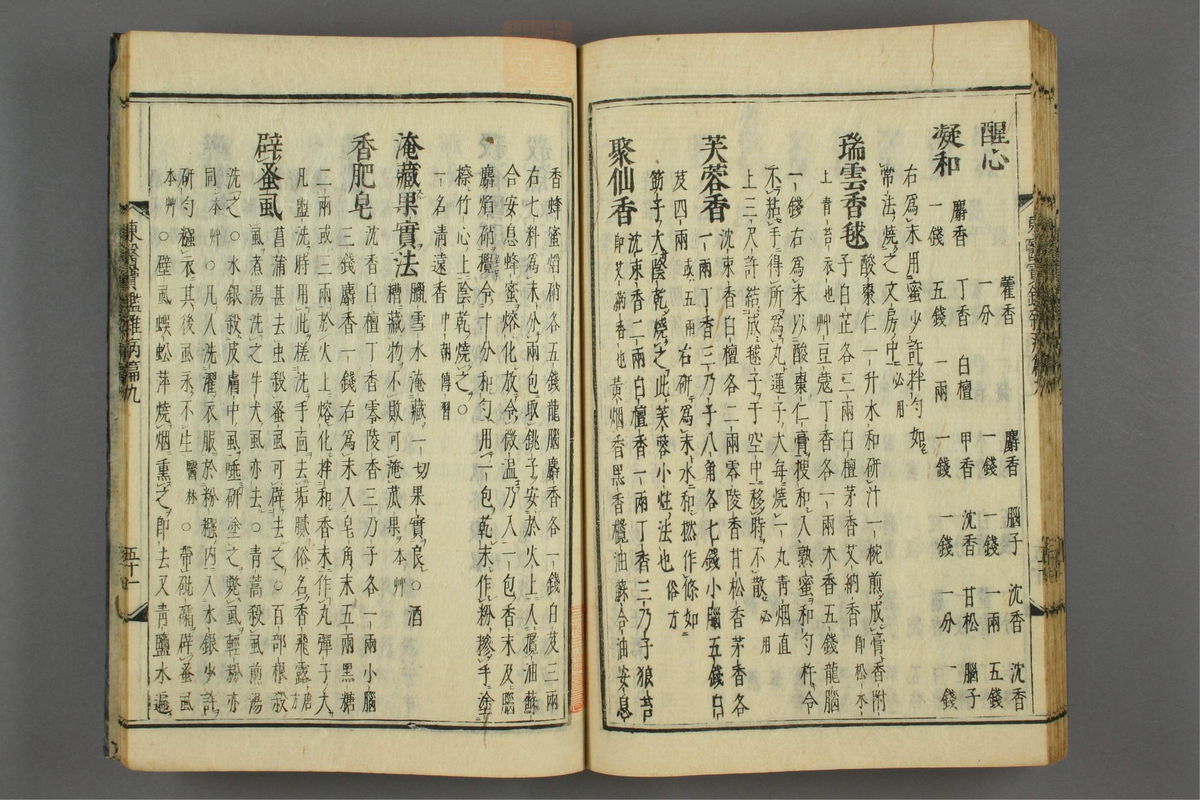 醒心
藿香一分 麝香一錢 腦子一錢 沈香一兩 沈香五錢
凝和
麝香一錢 丁香五錢 白檀一兩 甲香一錢 沈香一錢 甘松一分 腦子一錢
右爲末用蜜少許拌勻如
常法燒之文房中必用
瑞雲香毬
酸棗仁一升水和硏汁一椀煎成膏香附
子白芷各三兩白檀茅香艾納香卽松木
上青苔衣也草豆蔲丁香各一兩木香五錢龍腦
一錢右爲末以酸棗仁膏搜和入熟蜜和勻杵令
不粘手得所爲丸蓮子大每燒一丸青烟直
上三尺許結成毬子于空中移時不散必用
芙蓉香
沈束香白檀各二兩零陵香甘松香茅香各
一兩丁香三乃子八角各七錢小腦五錢白
芨四兩或五兩右硏爲末水和撚作條如
筯子大陰乾燒之此芙蓉小炷法也俗方
聚仙香
沈束香二兩白檀香一兩丁香三乃子狼苔
卽艾蒳香也黃烟香黑香欖油蘇合油安息
香蜂蜜焰硝各五錢龍腦麝香各一錢白芨三兩
右七料爲末分兩包取銚子安於火上入欖油蘇
合安息蜂蜜熔化放令微溫乃入一包香末及腦
麝焰硝攪令十分和勻用一包乾末作粉摻手塗
撩竹心上陰乾燒之○
一名淸遠香中朝傳習
淹藏果實法
臘雪水淹藏一切果實良○酒
糟藏物不敗可淹蓏果本艸
香肥皂
沈香白檀丁香零陵香三乃子各一兩小腦
三錢麝香一錢右爲末入皂角末五兩黑糖
二兩或三兩於火上熔化拌和香末作丸彈子大
凡盥洗時用此槎洗手面去垢膩俗名香飛露唐方
辟蚤虱
菖蒲甚去虫殺蚤虱可辟去之○百部根殺
虱煮湯洗之牛犬虱亦去○青蒿殺虱煎湯
洗之○水銀殺皮膚中虱唾硏塗之斃虱輕粉亦
同本艸○凡人洗濯衣服於粉糨內入水銀少許
硏勻糨衣其後虱永不生醫林○帶硫礦辟蚤虱
本艸○壁虱蜈蚣萍燒烟熏之卽去又青鹽水遍
東醫寶鑑雜病篇九
五十一